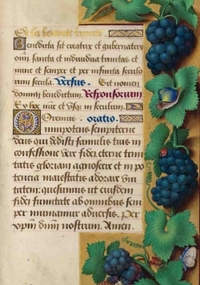 Benedicta sit creatrix et gubernatrix
oim sancta et individua trinitas et
nunc et semper et per infinita seculo
rum secula. Versus. Sit nomen
domini benedictum. Responsorium
Ex hoc nunc et vsq; in seculum.
Oremus. oratio.
Omnipotens sempiterne
deus qui dedisti famulis tuis in
confessione vere fidei eterne trini
tatis gloriam agnoscere et in po
tencia maiestatis adorare vni
tatem: quesumus ut eiusdem
fidei firmitate ab omnibus sem
per muniamur adversis. Per
xpm dnm nostrum. Amen.